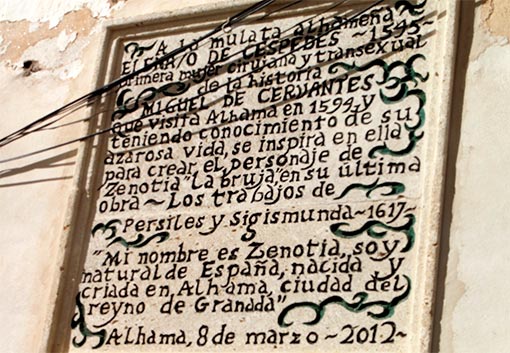 ~A la mulata alhameña
ELENA/O DE CÉSPEDES ~1545~
primera mujer cirujana y transexual
de la historia
~MIGUEL DE CERVANTES
que visita Alhama en 1594, y
teniendo conocimiento de su
azarosa vida, se inspira en ella
para crear el personaje de
Zenotia "La bruja", en su última
obra ~ Los trabajos de
Persiles y Sigismunda ~1617~
"Mi nombre es Zenotia, soy
natural de España, nacida y
criada en Alhama, ciudad del
reyno de Granada"
Alhama, 8 de marzo ~2012~